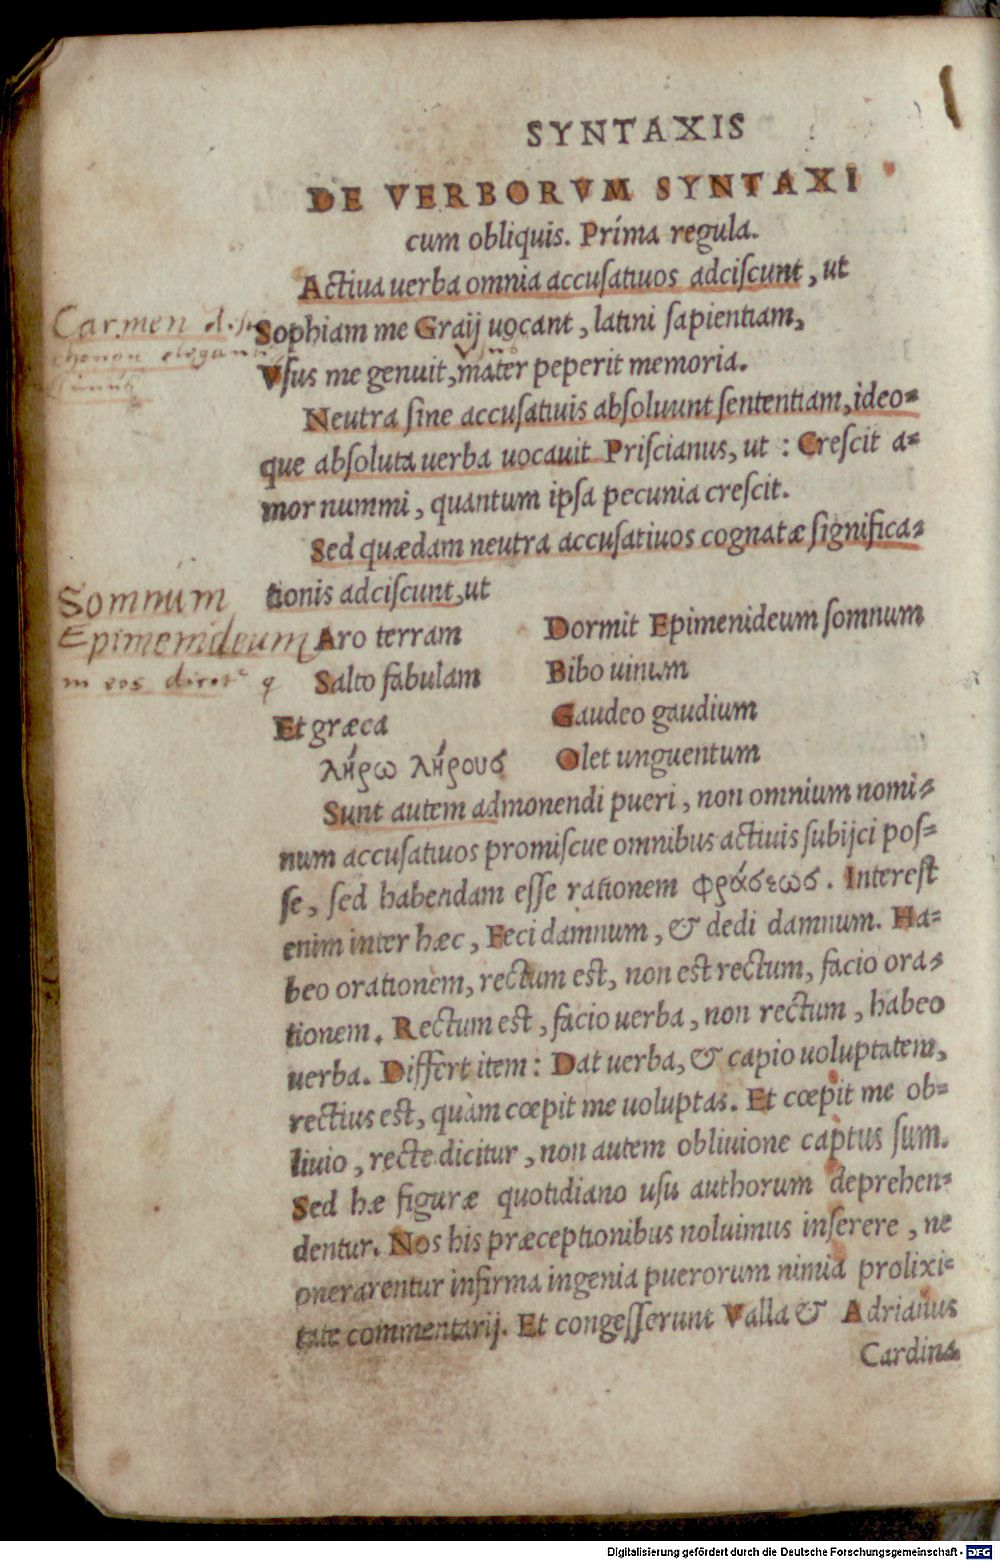 SYNTAXIS
DE VERBORVM SYNTAXI
cum obliquis. Prima regula.
Actiua uerba omnia accusatiuos adciscunt, ut
Carmen
Sophiam me Graij uocant, latini sapientiam,
Vsus me genuit, mater peperit memoria.
Neutra sine accusatiuis absoluunt sententiam, ideo=
que absoluta uerba uocauit Priscianus, ut : Crescit a=
mor nummi, quantum ipsa pecunia crescit.
Sed quædam neutra accusatiuos cognatæ significa=
tionis adciscunt, ut
Somnum
Epimenideum
Aro terram Dormit Epimenideum somnum
Salto fabulam Bibo uinum
Et græca Gaudeo gaudium
λήρω λήρους Olet unguentum
Sunt autem admonendi pueri, non omnium nomi=
num accusatiuos promiscue omnibus actiuis subijci pos=
se, sed habendam esse rationem φράσεως. Interest
enim inter hæc, Feci damnum, & dedi damnum. Ha=
beo orationem, rectum est, non est rectum, facio ora=
tionem. Rectum est, facio uerba, non rectum, habeo
uerba. Differt item: Dat uerba, & capio uoluptatem,
rectius est, quàm cœpit me uoluptas. Et cœpit me ob=
liuio, recte dicitur, non autem obliuione captus sum.
Sed hæ figuræ quotidiano usu authorum deprehen=
dentur. Nos his præceptionibus noluimus inserere, ne
onerarentur infirma ingenia puerorum nimia prolixi=
tate commentarij. Et congesserunt Valla & Adrianus
Cardina
Digitalisierung gefördert durch die Deutsche Forschungsgemeinschaft - DFG